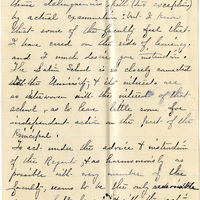 those delinquencies with this exception
by actual examination; but I know
that some of the faculty feel that
I have erred on the side of leniency
and I much desire your instruction.
The School is so closely connected
with the University, & its interests are
so interwoven with the interests of that
school, as to leave little room for
independent action on the part of the
Principal.
To act under the advice & instruction
of the Regents, & as harmoniously as
possible with every member of the
faculty, seems to be the only reasonable